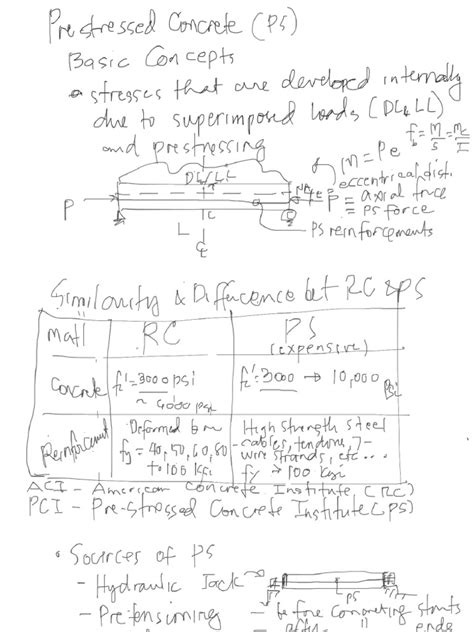 Prestressed Concrete (PS)
Basic Concepts
stresses that are developed internally
due to superimposed loads (DL&LL)
and prestressing
f_b = M/S = Mc/I
M = Pe
e = eccentrical dist.
P = axial force
= PS force
PS reinforcements
DL/LL
T
NA
e
P
C
L
℄
Similarity & Difference bet RC & PS
mat'l RC PS
(expensive)
Concrete fc' = 3000 psi fc' = 3000 → 10,000 psi
~ 4000 psi
Reinforcement Deformed bar High strength steel
fy = 40, 50, 60, 80 - cables, tendons, 7-
to 100 ksi wire strands, etc ...
fy → 100 ksi
ACI - American Concrete Institute (RC)
PCI - Pre-stressed Concrete Institute (PS)
• Sources of PS
- Hydraulic Jack
PS
- Pretensioning - before concreting starts
after " ends